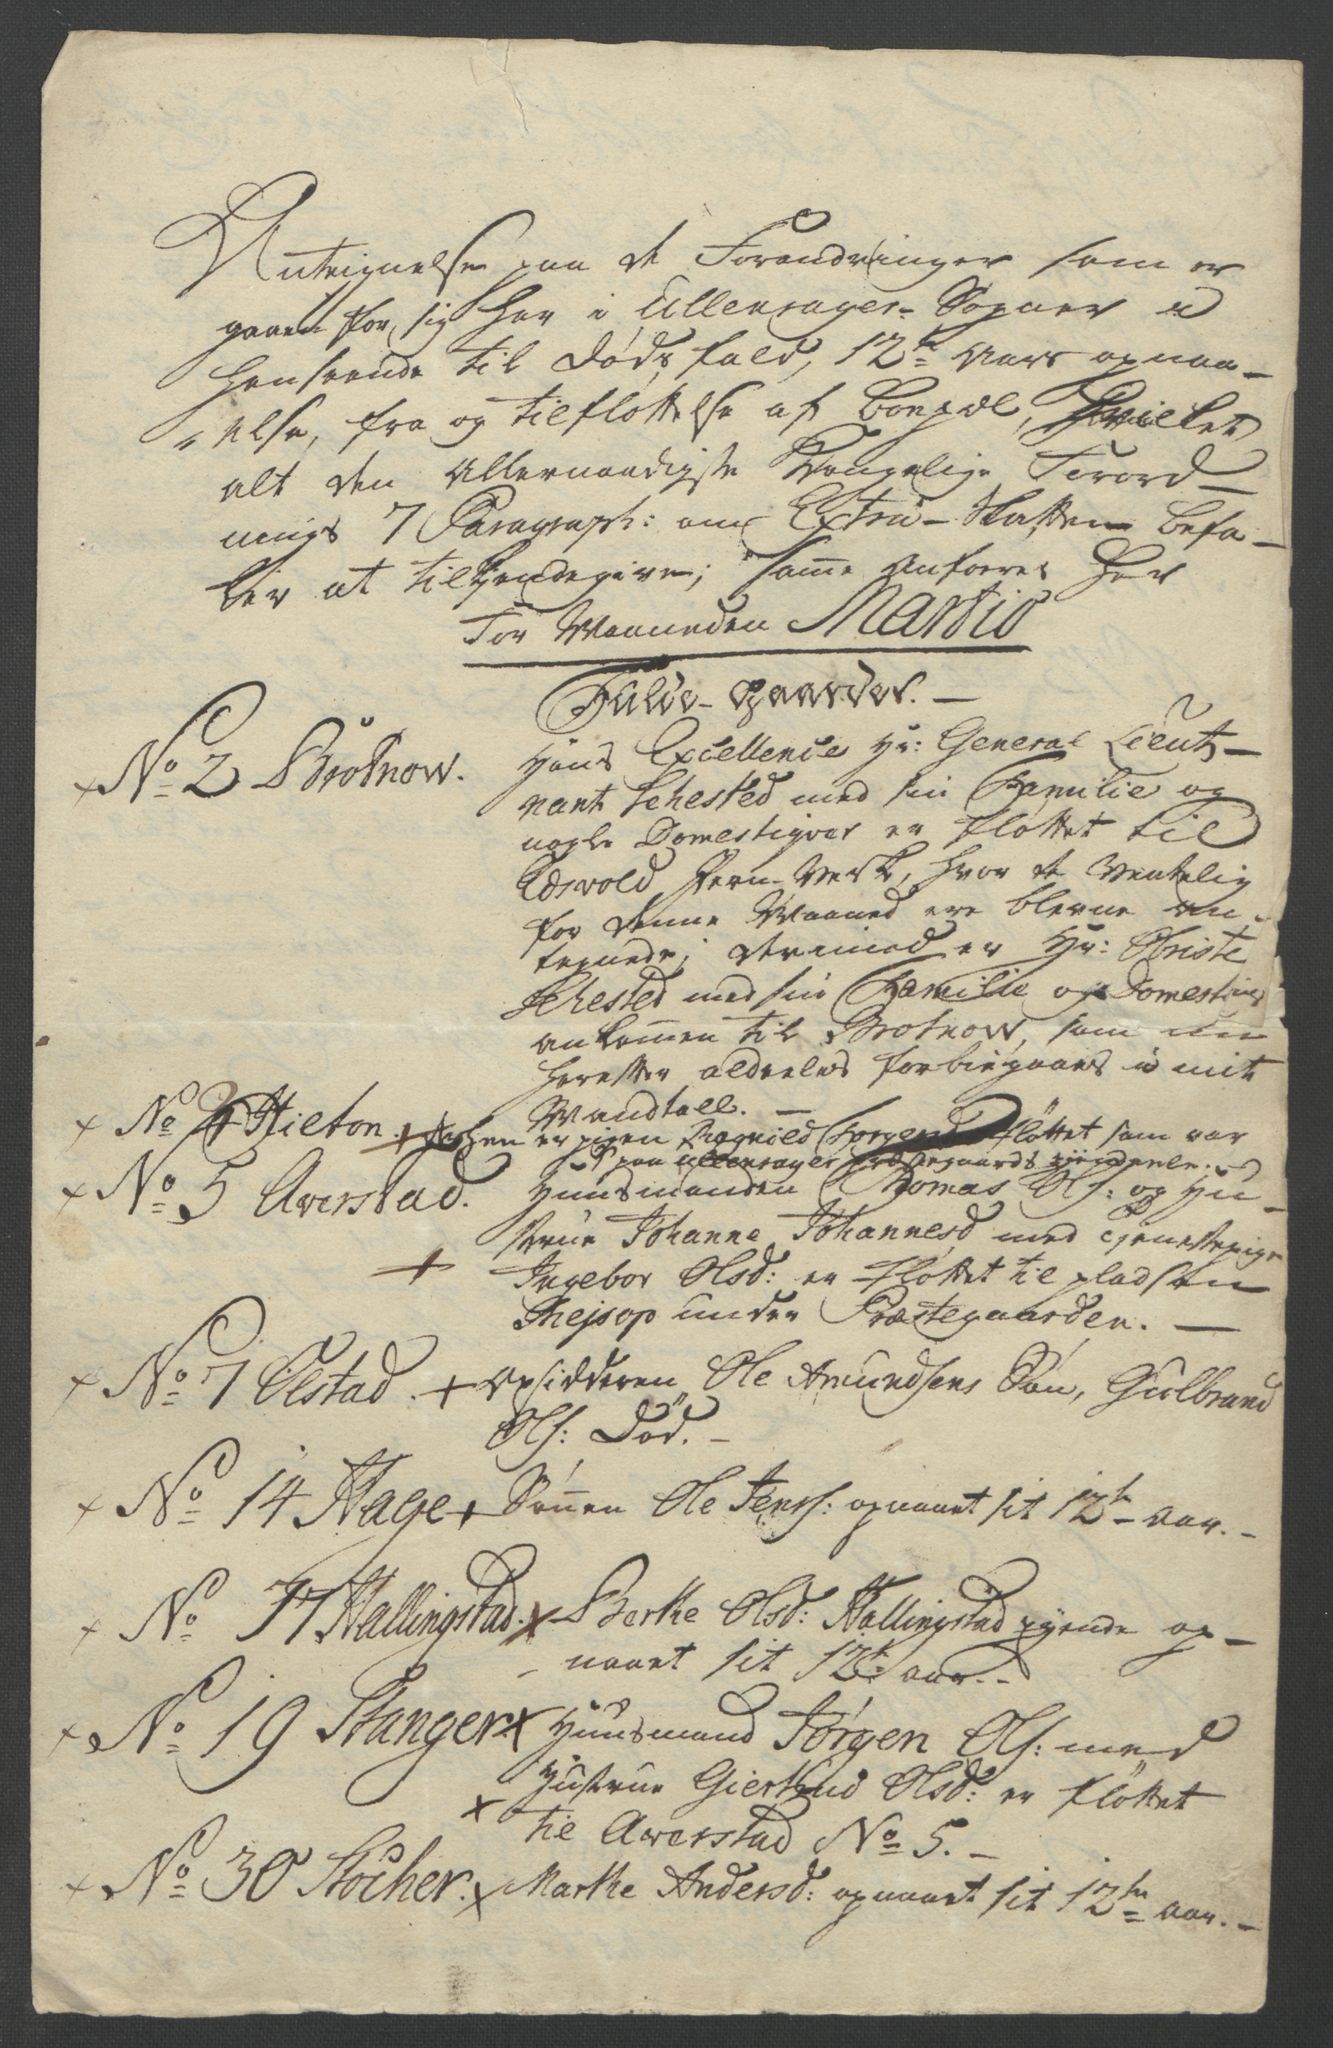 Anteignelse paa de Forandringer som er
gaaen for sig her i Ullensager Sogner i
henseende til Døds fald, 12te Aars opnaa-
else, fra og tilfløttelse af Boepæl, hvilket
alt den Allernaadigste Kongelige Forord-
nings 7 Paragraph: om Extra-Skatten befa-
ler at tilkiendegive; samme anføres her
for Maaneden Martio
Fulde-gaarder.-
No 2 Brotnow. Hans Excellence Hr: General Lieut-
nant Sehested med sin Familie og
nogle Domestiqver er fløttet til
Edsvold Jern-Verk, hvor de ventelig
for denne Maaned ere blevne an-
tegnede; derimod er Hr: Obriste
Sehested med sin Familie og Domestiqver
ankommen til Brotnow, som
herefter aldeeles forbiegaaes i mit
Mandtall.-
No 4 Hilton er pigen Ragnild fløttet som var
paa Ullensager Præstegaards
No 5 Averstad. Huusmanden Thomas Ols: og Hu-
strue Johanne Johannesd med tjenestepige
Ingebor Olsd: er fløttet til pladsen
Thejsop under Præstegaarden.-
No 7 Olstad. Opsidderen Ole Amundsens Søn, Gulbrand
Ols: Død.-
No 14 Hage Sønnen Ole Jens: opnaaet sit 12te aar.-
No 17 Hallingstad. Berthe Olsd: Hallingstad op-
naaet sit 12te aar.-
No 19 Stanger Huusmand Jørgen Ols: med
Hustrue Gierthrud Olsd: er fløttet
til Averstad No 5.-
No 30 Stocher. Marthe Andersd: opnaaet sit 12te aar.-